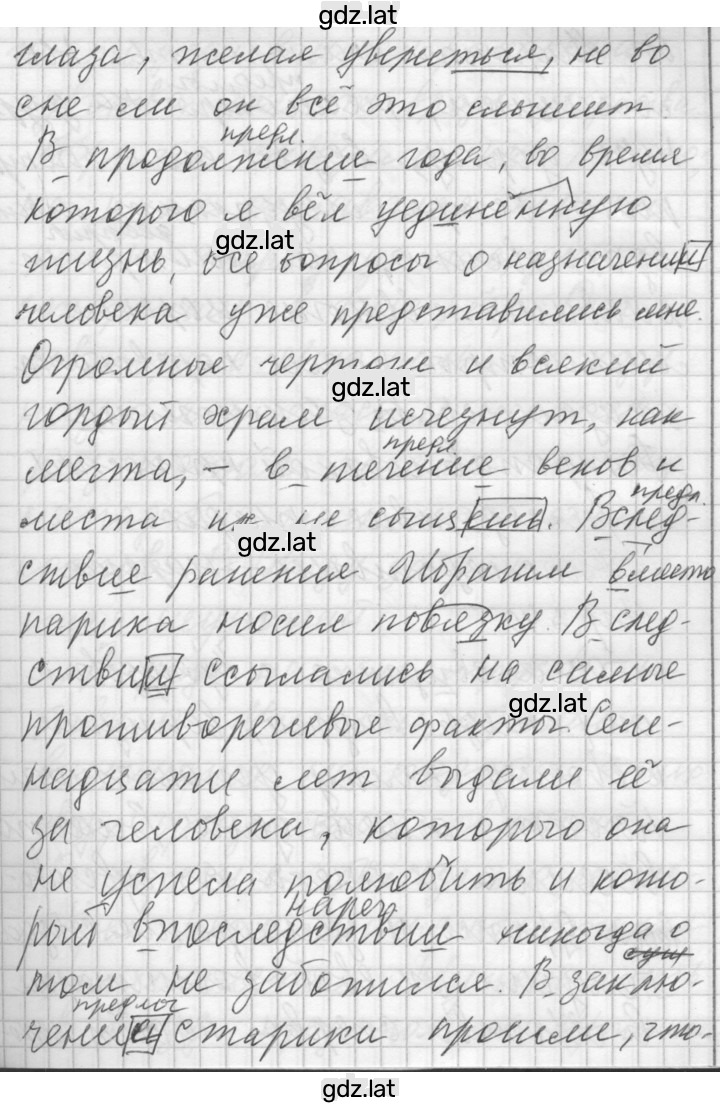 gdz.lat
глаза, желая увериться, не во
сне ли он всё это слышит.
предл.
В продолжение года, во время
которого я вёл уединённую
gdz.lat
жизнь, все вопросы о назначении
человека уже представились мне.
Огромные чертоги и всякий
gdz.lat
гордый храм исчезнут, как
предл.
мечта, – в течение веков и
предл.
места их не сыщешь. Вслед-
gdz.lat
ствие ранения Ибрагим вместо
парика носил повязку. В след-
ствии ссылались на самые
gdz.lat
противоречивые факты. Сем-
надцати лет выдали её
за человека, которого она
не успела полюбить и кото-
нареч
рый впоследствии никогда о
сущ
том не заботился. В заклю-
предлог
чении старики просили, что-
gdz.lat